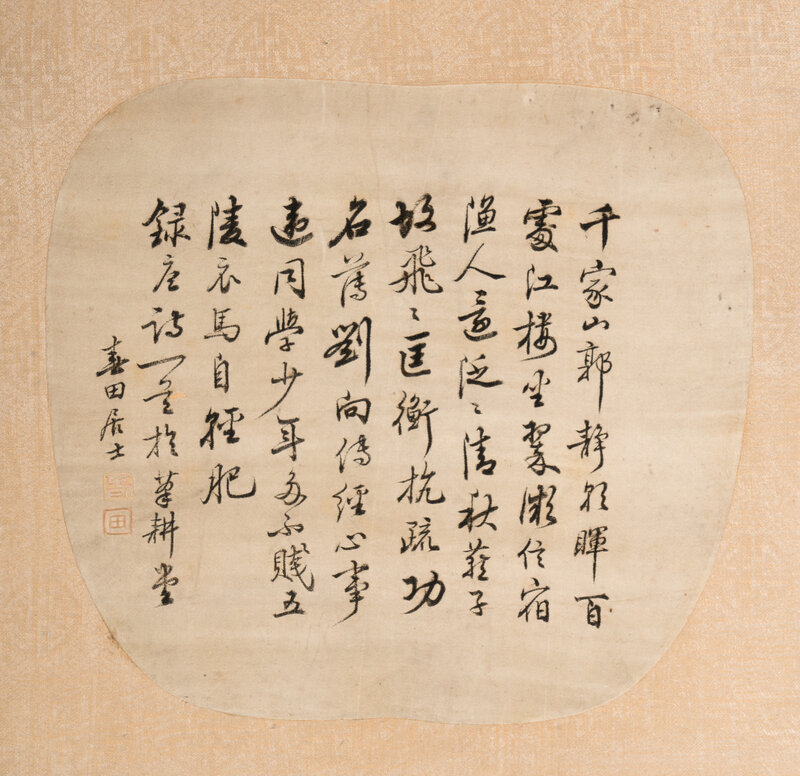 千家山郭靜朝暉百
處江楼坐翠微信宿
漁人還泛〻清秋燕子
故飛〻匡衡抗疏功
名薄劉向傳經心事
違同學少年多不賤五
陵衣馬自輕肥
録唐詩一首於筆耕堂
田居士
田